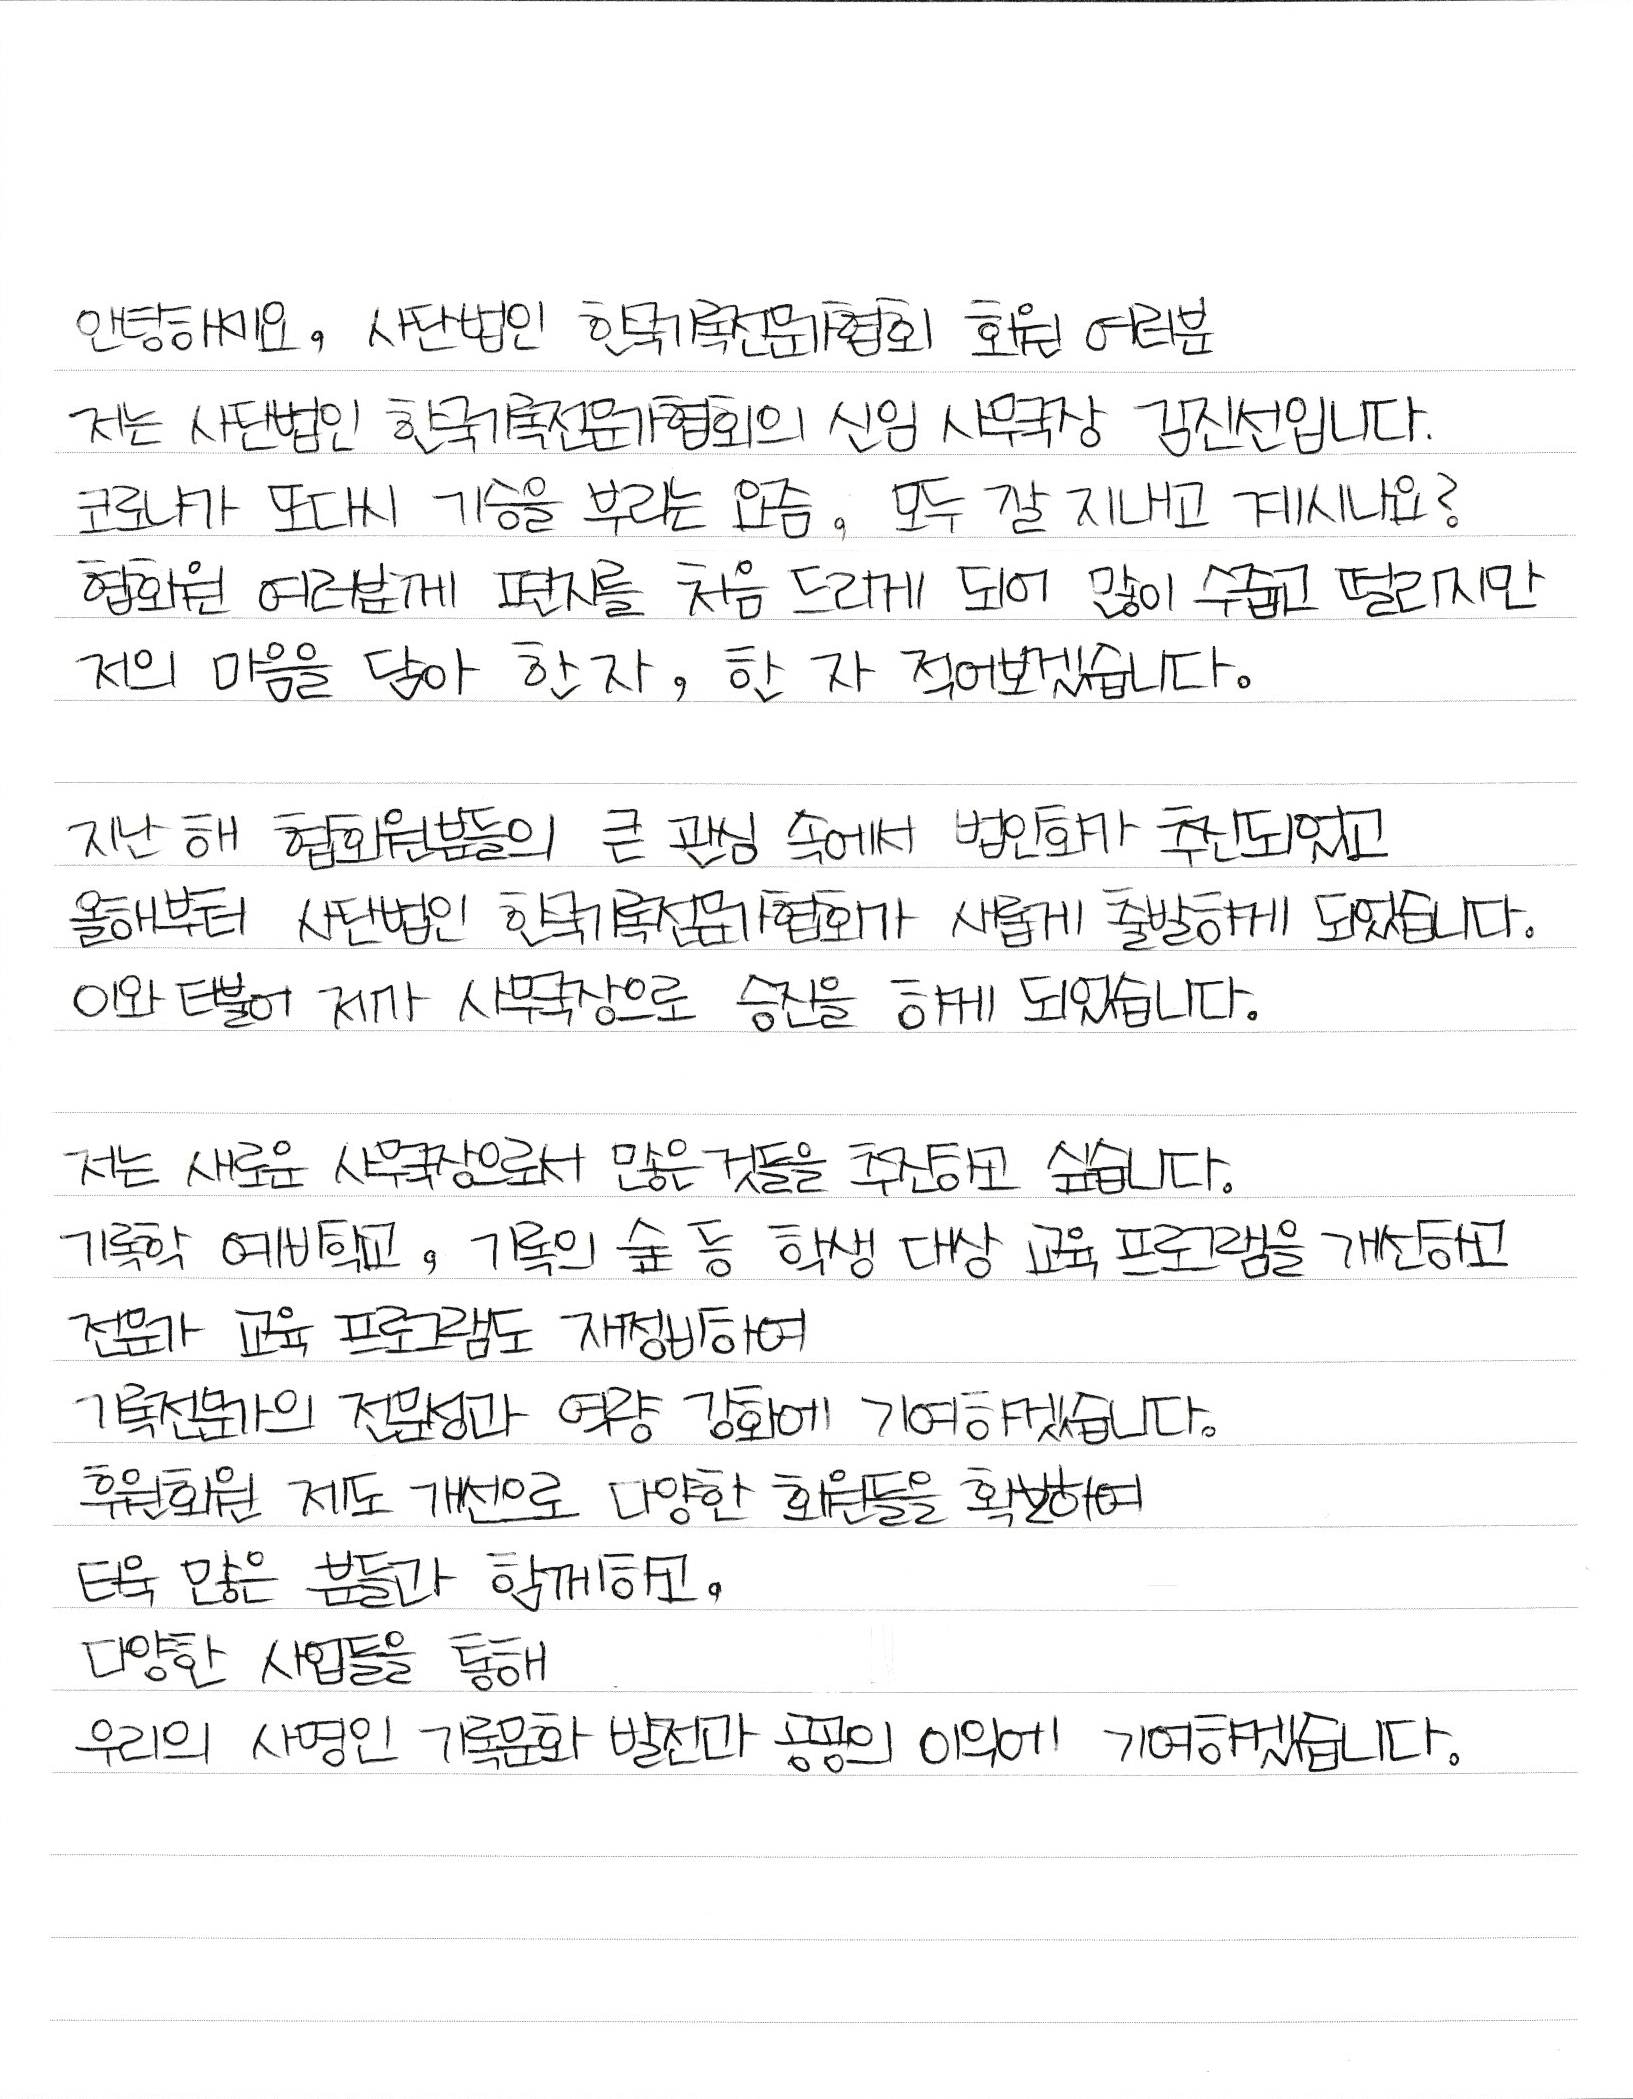 안녕하세요, 사단법인 한국기록전문가협회 회원 여러분
저는 사단법인 한국기록전문가협회의 신임 사무국장 김진선입니다.
코로나가 또다시 기승을 부리는 요즘, 모두 잘 지내고 계시나요?
협회원 여러분께 편지를 처음 드리게 되어 많이 수줍고 떨리지만
저의 마음을 담아 한 자, 한 자 적어보겠습니다.
지난 해 협회원분들의 큰 관심 속에서 법인화가 추진되었고
올해부터 사단법인 한국기록전문가협회가 새롭게 출발하게 되었습니다.
이와 더불어 제가 사무국장으로 승진을 하게 되었습니다.
저는 새로운 사무국장으로서 많은 것들을 추진하고 싶습니다.
기록학 예비학교, 기록의 숲 등 학생 대상 교육 프로그램을 개선하고
전문가 교육 프로그램도 재정비하여
기록전문가의 전문성과 역량 강화에 기여하겠습니다.
후원회원 제도 개선으로 다양한 회원들을 확보하여
더욱 많은 분들과 함께하고,
다양한 사업들을 통해
우리의 사명인 기록문화 발전과 공공의 이익에 기여하겠습니다.